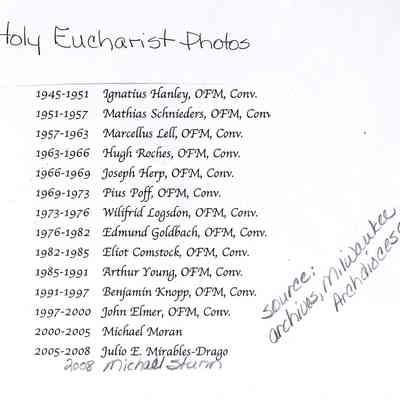 Holy Eucharist Photos
1945-1951 Ignatius Hanley, OFM, Conv.
1951-1957 Mathias Schnieders, OFM, Conv
1957-1963 Marcellus Lell, OFM, Conv.
1963-1966 Hugh Roches, OFM, Conv.
1966-1969 Joseph Herp, OFM, Conv.
1969-1973 Pius Poff, OFM, Conv.
1973-1976 Wilifrid Logsdon, OFM, Conv.
1976-1982 Edmund Goldbach, OFM, Conv.
1982-1985 Eliot Comstock, OFM, Conv.
1985-1991 Arthur Young, OFM, Conv.
1991-1997 Benjamin Knopp, OFM, Conv.
1997-2000 John Elmer, OFM, Conv.
2000-2005 Michael Moran
2005-2008 Julio E. Mirables-Drago
2008 Michael Sturm
source:
archives, Milwaukee
Archdiocese